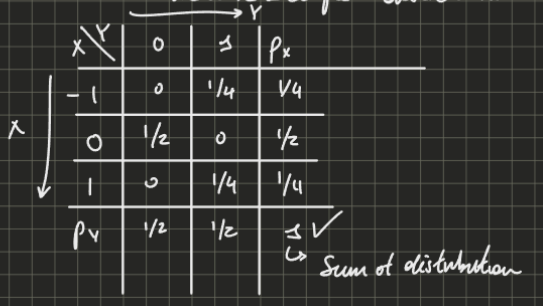 Y
X Y 0 1 Px
-1 0 1/4 1/4
X
0 1/2 0 1/2
1 0 1/4 1/4
PY 1/2 1/2 1 ✓
↳ Sum of distribution